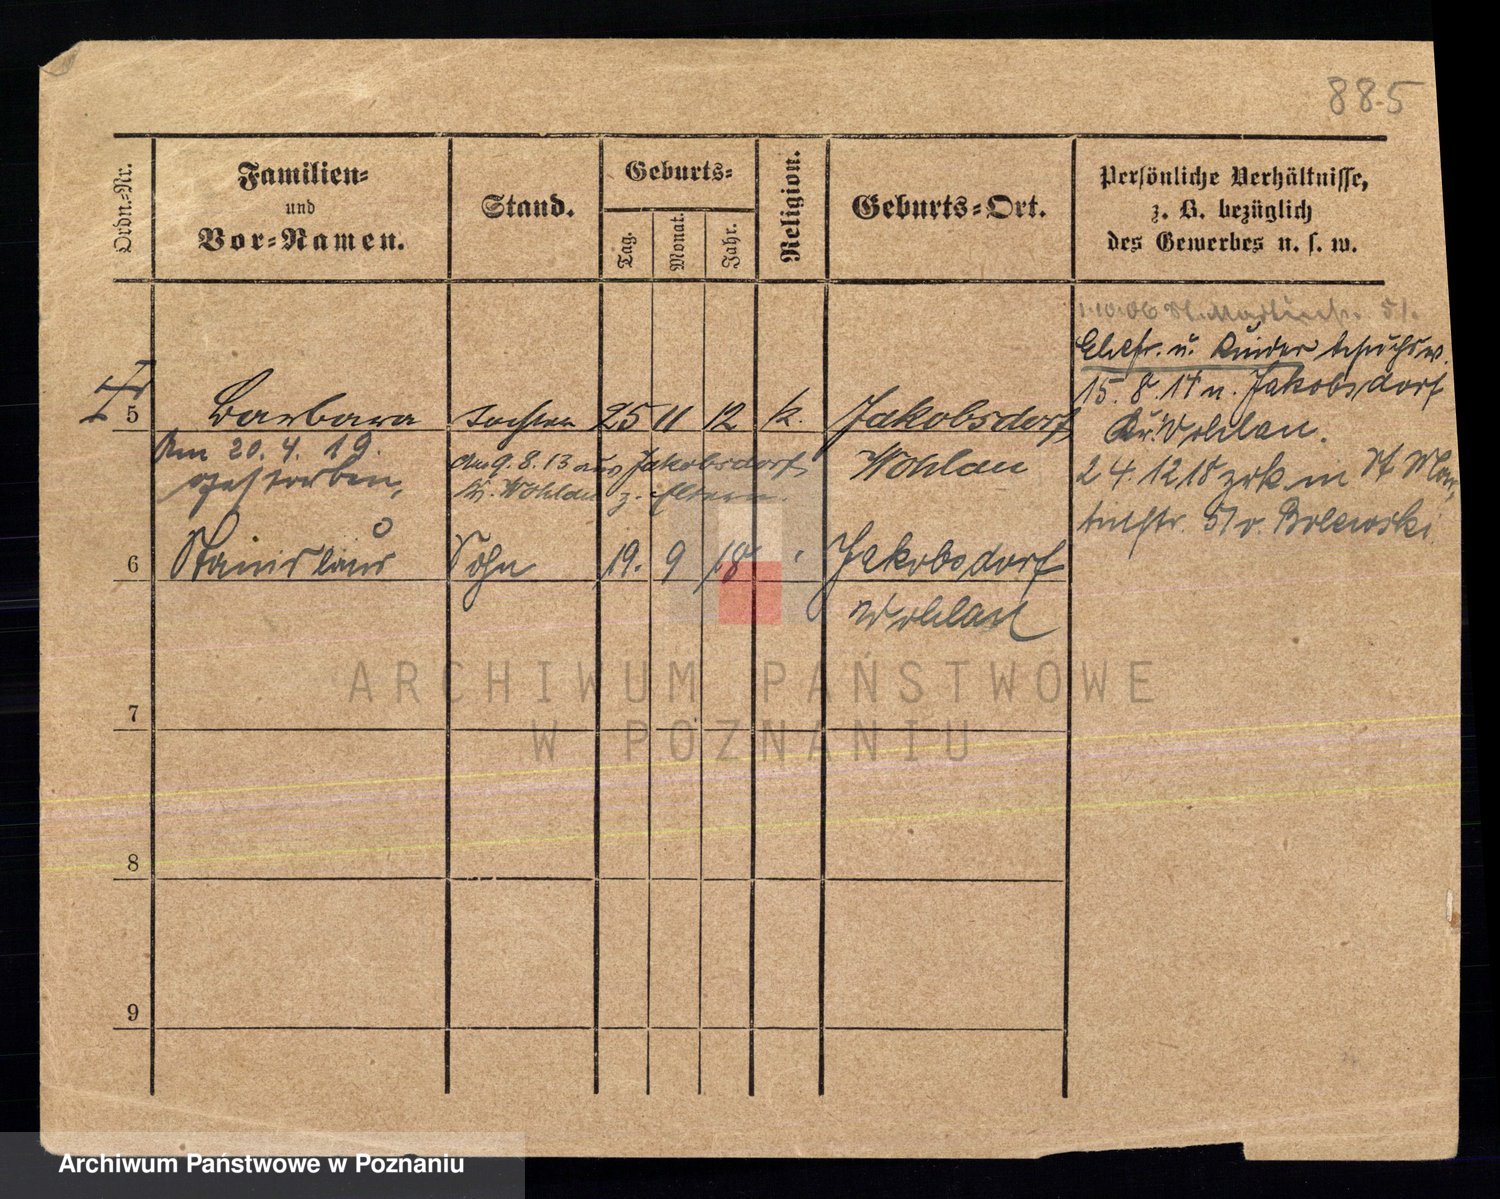 885
Ordn.-Nr.
Familien-
und
Vor-Namen.
Stand.
Geburts-
Tag.
Monat.
Jahr.
Religion.
Geburts-Ort.
Persönliche Verhältnisse,
z. B. bezüglich
des Gewerbes u. s. w.
1.10.06 St. Martinstr. 51.
Ehefr. u. Kinder besuchsw.
15. 8. 17 n. Jakobsdorf
Kr. Wohlau.
2 4. 12 18 zrk. in St Mar-
tinstr. 51 v. Bolewski
5 Barbara Tochter 25 11 12 k. Jakobsdorf
Wohlau
Am 20. 4. 19.
gestorben,
am 9. 8. 13 aus Jakobsdorf
Kr. Wohlau z. Eltern.
6 Stanislaus Sohn 19. 9 18 Jakobsdorf
Wohlau
7
8
9
ARCHIWUM PAŃSTWOWE
W POZNANIU
Archiwum Państwowe w Poznaniu